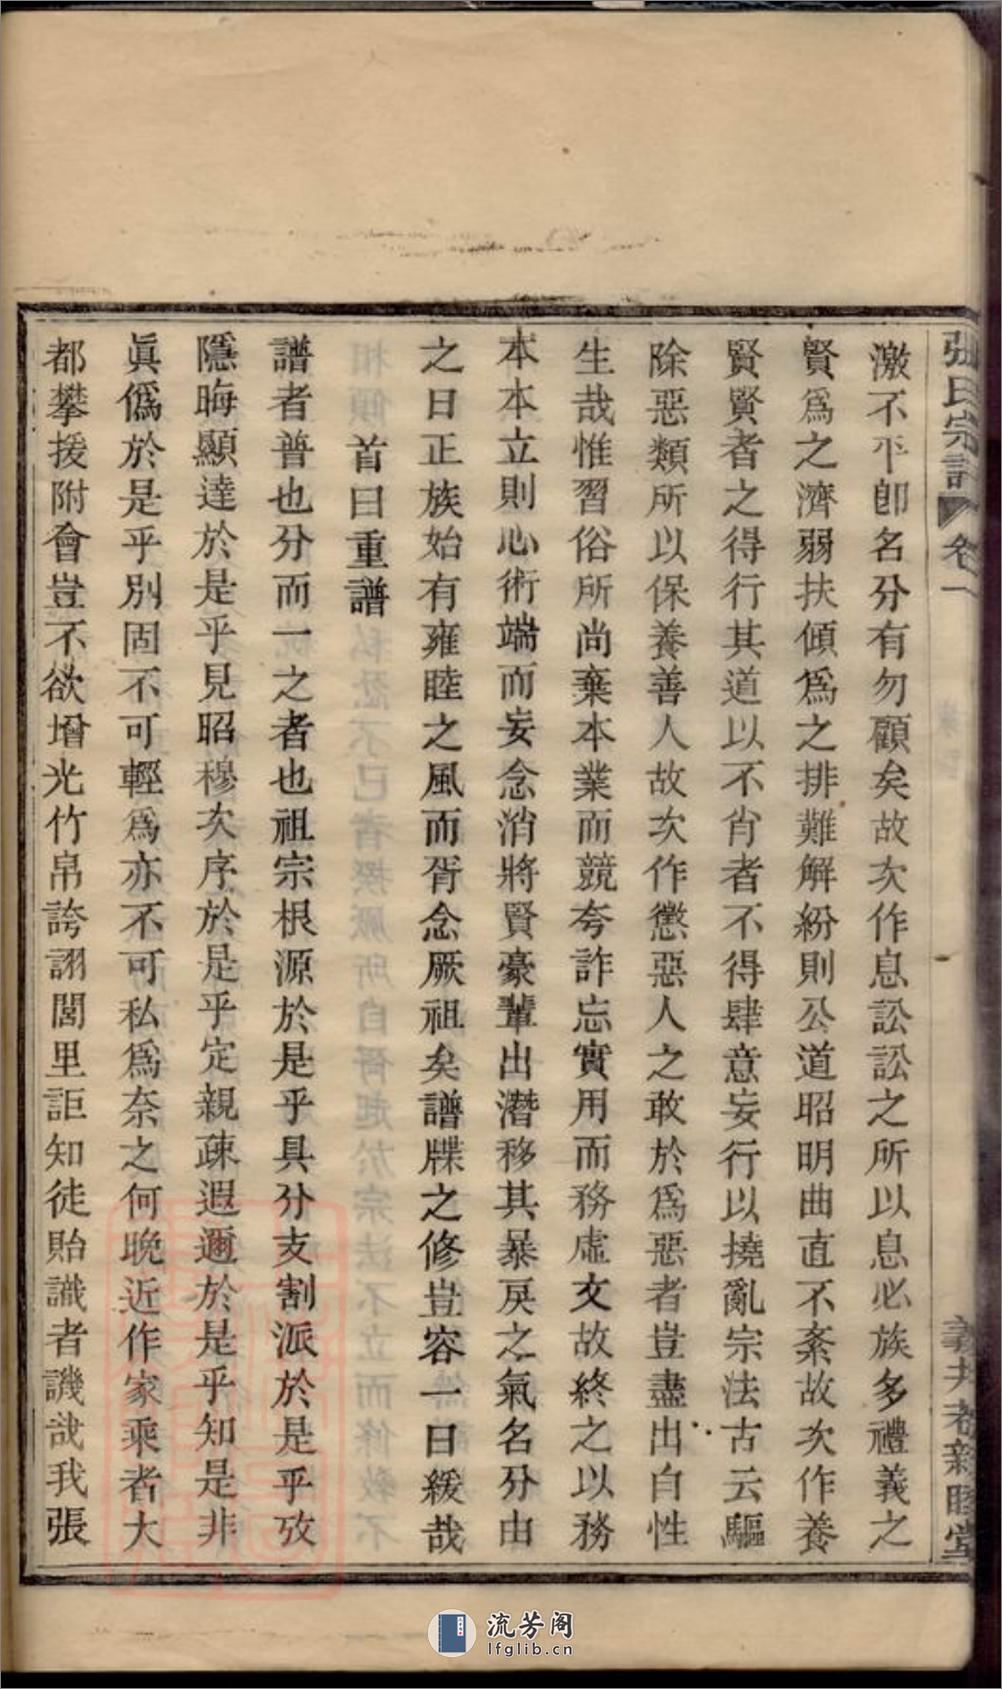 張氏宗譜
卷一
義井老新睦堂
激不平卽名分有勿顧矣故次作息訟訟之所以息必族多禮義之
賢爲之濟弱扶傾爲之排難解紛則公道昭明曲直不紊故次作養
賢賢者之得行其道以不肖者不得肆意妄行以撓亂宗法古云驅
除惡類所以保養善人故次作懲惡人之敢於爲惡者豈盡出自性
生哉惟習俗所尚棄本業而競夸詐忘實用而務虛文故終之以務
本本立則心術端而妄念消將賢豪輩出潛移其暴戾之氣名分由
之日正族始有雍睦之風而胥念厥祖矣譜牒之修豈容一日緩哉
首曰重譜
譜者普也分而一之者也祖宗根源於是乎具分支割派於是乎攷
隱晦顯達於是乎見昭穆次序於是乎定親疎遐邇於是乎知是非
眞僞於是乎別固不可輕爲亦不可私爲奈之何晚近作家乘者大
都攀援附會豈不欲增光竹帛誇詡閭里詎知徒貽識者譏哉我張
流芳阁
lfglib.cn